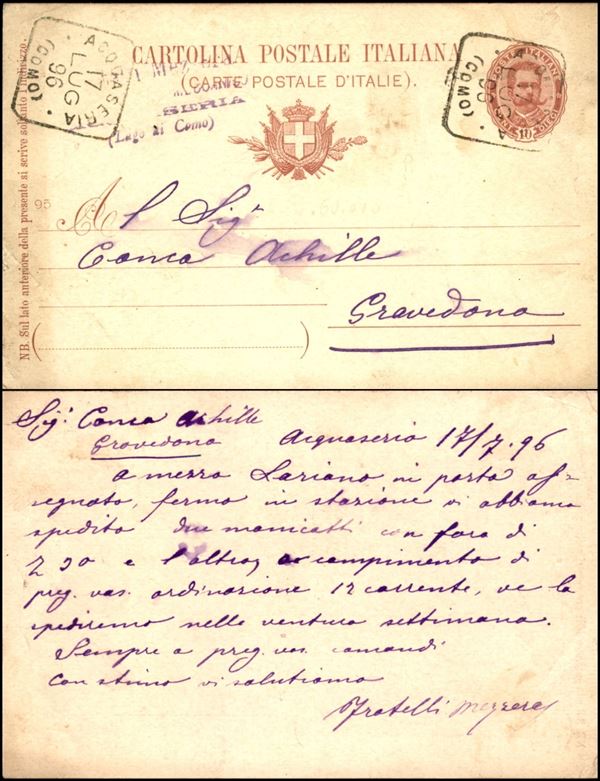 CARTOLINA POSTALE ITALIANA
(CARTE POSTALE D'ITALIE).
ACQUASERIA
17
LUG
96
(COMO)
SERIA
(Lago di Como)
17
96
(COMO)
POSTE ITALIANE
10
DIECI
NB. Sul lato anteriore della presente si scrive soltanto l'indirizzo.
95
Al Sigr
Conca Achille
Gravedona
Sigr Conca Achille
Gravedona Acquaseria 17/7.96
a mezzo Lariano in porto as=
segnato, fermo in stazione vi abbiamo
spedito due manicotti con foro di
e l'altro, compimento di
preg. vos. ordinazione 12 corrente, ve lo
spediremo nella ventura settimana.
Sempre a preg. vos. comandi
con stima vi salutiamo
Fratelli Mezzera